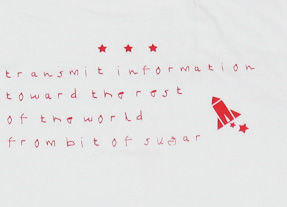 transmit information
toward the rest
of the world
from bit of sugar